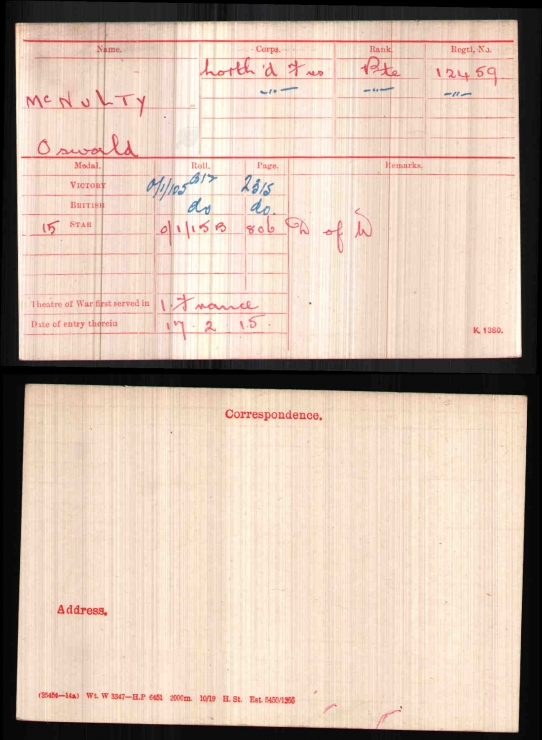 Name. Corps. Rank. Regtl. No.
North'd Fus Pte 12459
McNULTY -"- -"- -"-
Oswald
Medal. Roll. Page. Remarks.
VICTORY O/1/105 B17 2315
BRITISH do do.
15 STAR O/1/15B 806 D of W
Theatre of War first served in 1. France
Date of entry therein 17. 2. 15.
K. 1380.
Correspondence.
Address.
(35454—14a) Wt. W 3347—H.P 6451 2000m. 10/19 H. St. Est. 5450/1266